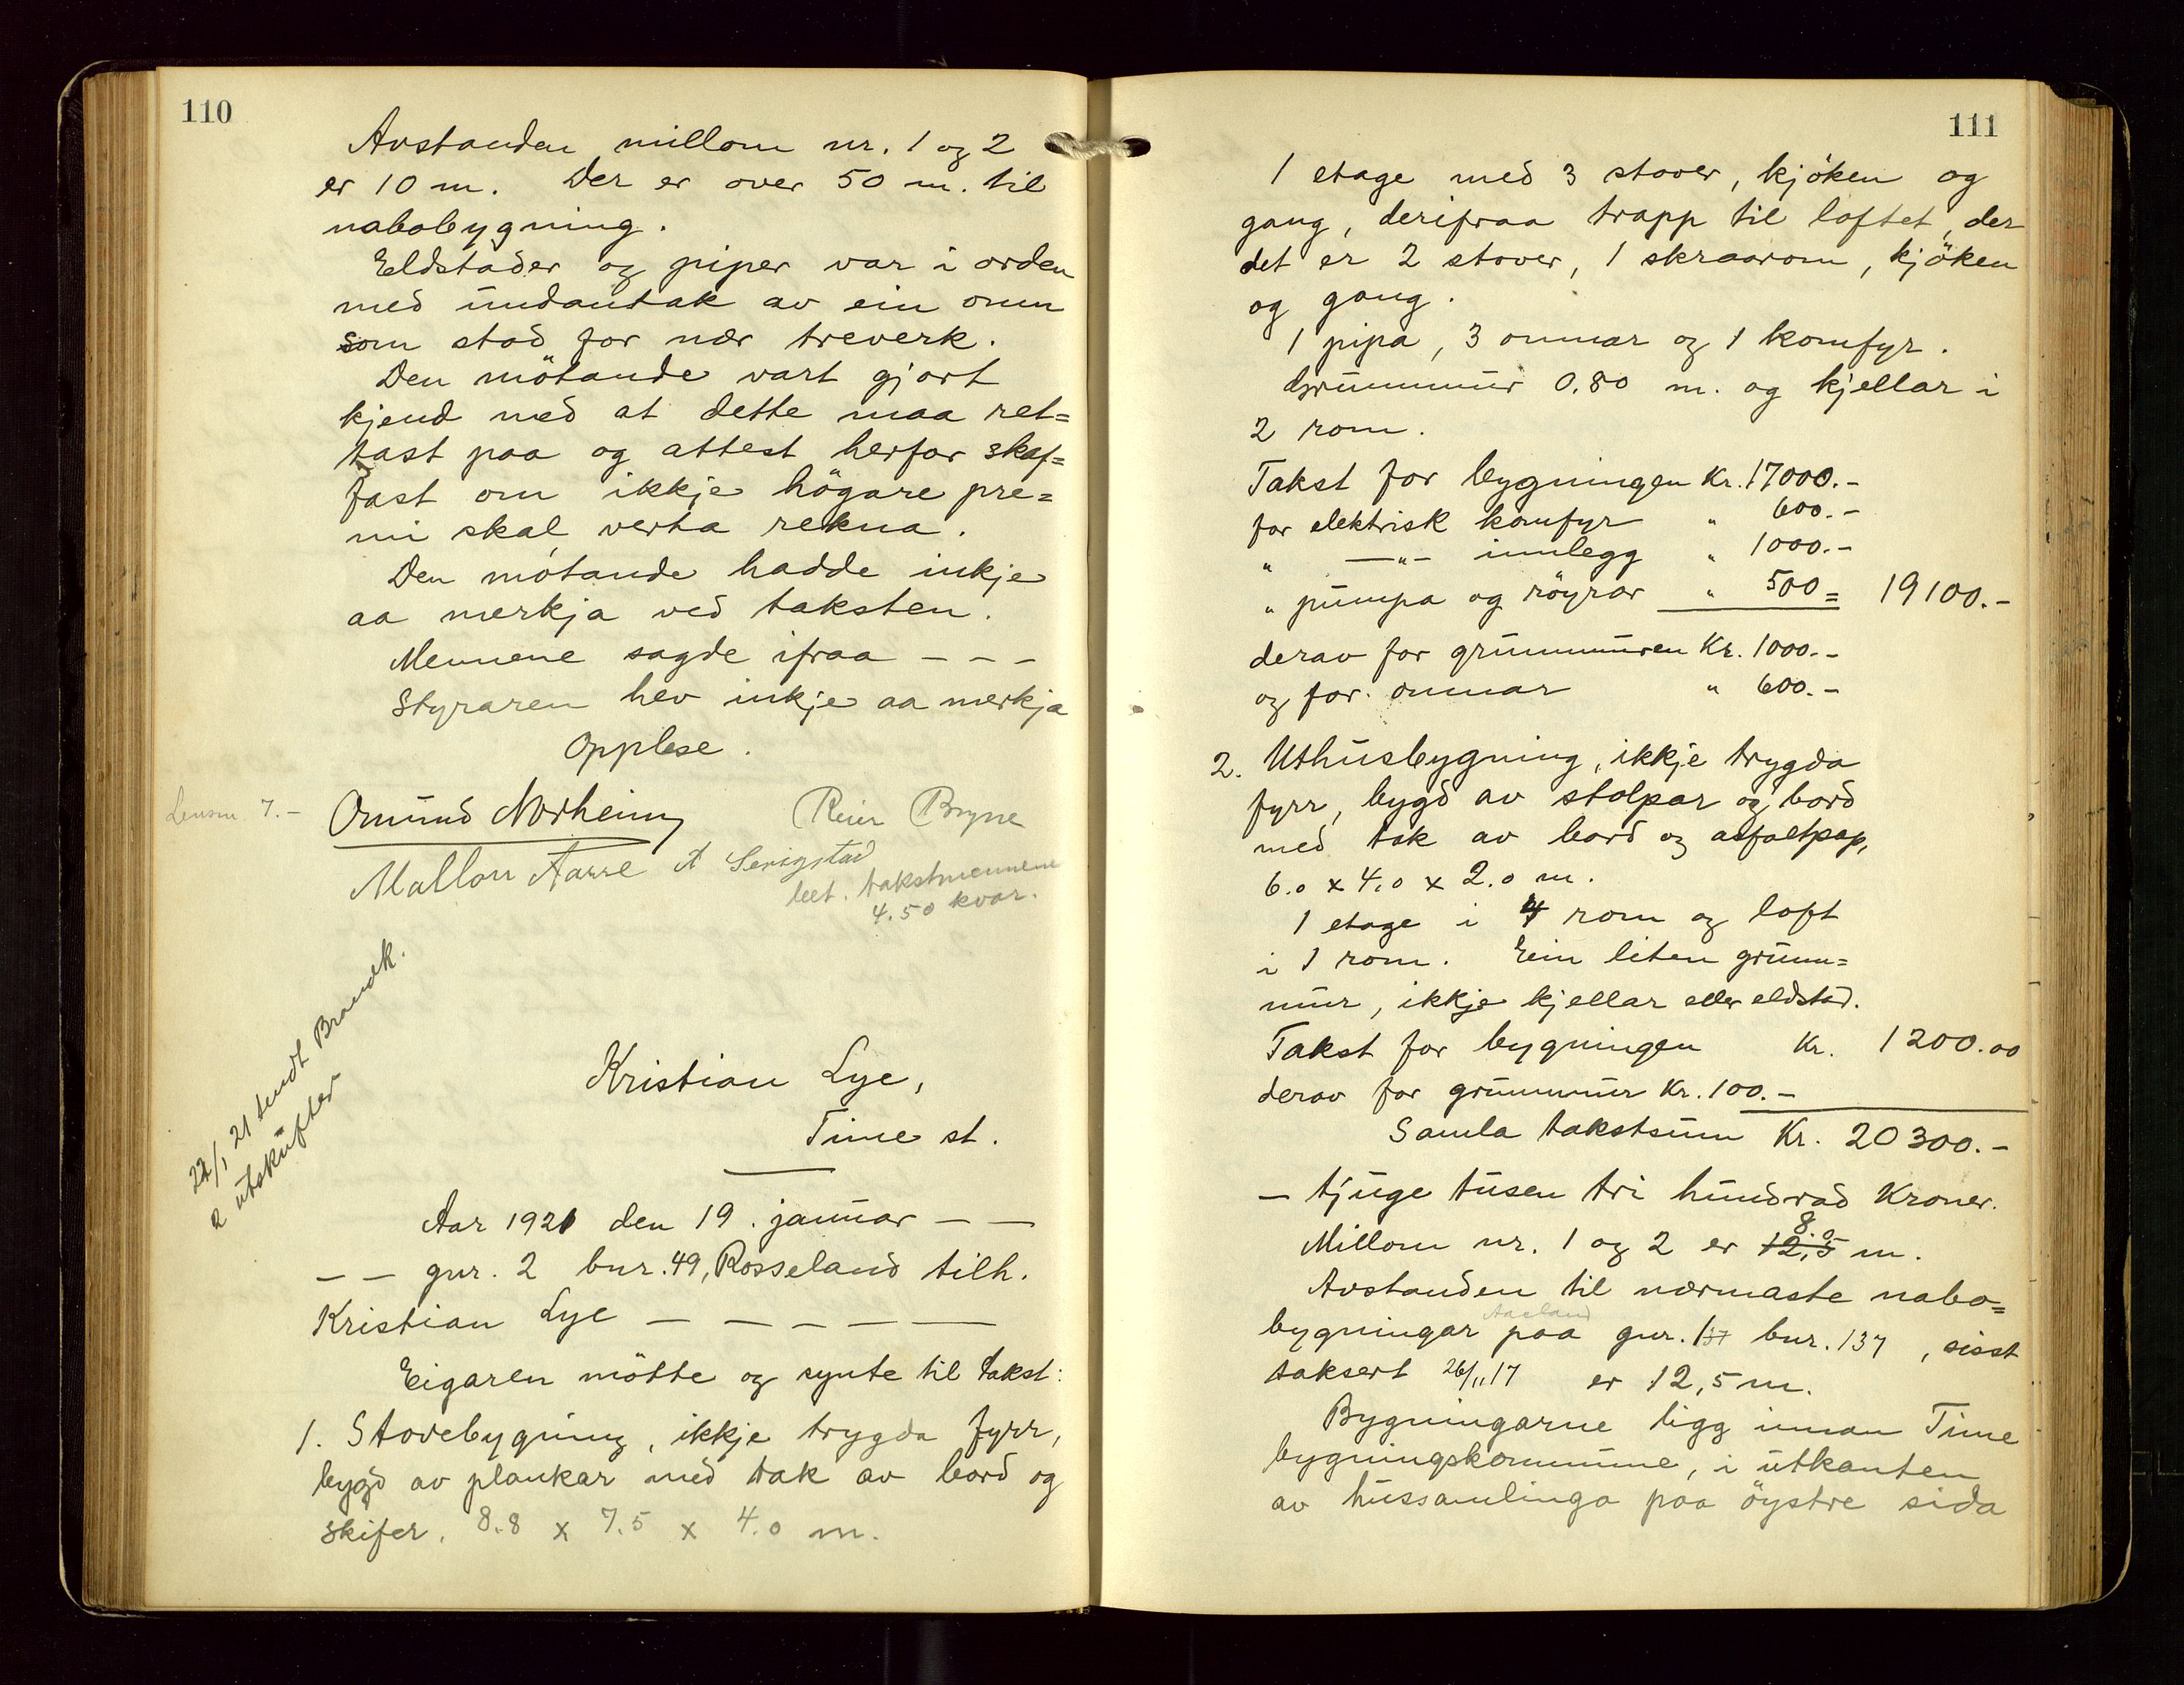 110
Avstanden millom nr. 1 og 2
er 10 m. Der er over 50 m. til
nabobygning.
Eldstader og piper var i orden
med undantak av ein omn
som stod for nær treverk.
Den mötande vart gjort
kjend med at dette maa ret=
tast paa og attest herfor skaf=
fast om ikkje högare pre=
mi skal verta rekna.
Den mötande hadde inkje
aa merkja ved taksten.
Mennene sagde ifraa - - -
Styraren hev inkje aa merkja
Opplese.
Lensm. 7.-
Omund Norheim Reier Bryne
Mallon Aarre A Serigstad
bet. takstmennene
4.50 kvar.
22/1 21 sendt Brandk.
2 utskrifter
Kristian Lye,
Time st.
Aar 1921 den 19. januar - -
- - gnr. 2 bnr. 49, Rosseland tilh.
Kristian Lye - - - - -
Eigaren mötte og synte til takst:
1. Stovebygning, ikkje trygda fyrr,
bygd av plankar med tak av bord og
skifer. 8.8 x 7.5 x 4.0 m.
111
1 etage med 3 stover, kjöken og
gang, derifraa trapp til loftet, der
det er 2 stover, 1 skraarom, kjöken
og gang.
1 pipa, 3 omnar og 1 komfyr.
Grunnmur 0.80 m. og kjellar i
2 rom.
Takst for bygningen Kr. 17000.-
for elektrisk komfyr " 600.-
" -"- innlegg " 1000.-
" pumpa og röyrar " 500= 19100.-
derav for grunnmuren Kr. 1000.-
og for omnar " 600.-
2. Uthusbygning, ikkje trygda
fyrr, bygd av stolpar og bord
med tak av bord og asfaltpap,
6.0 x 4.0 x 2.0 m.
1 etage i 4 rom og loft
i 1 rom. Ein liten grunn=
mur, ikkje kjellar eller eldstad.
Takst for bygningen Kr. 1200.00
derav for grunnmur Kr. 100.-
Samla takstsum Kr. 20300.-
- tjuge tusen tri hundrad Kroner.
8.0
Millom nr. 1 og 2 er 12,5 m.
Avstanden til nærmaste nabo=
Aareland
bygningar paa gnr. 1 bnr. 137, sisst
taksert 26/11 17 er 12,5 m.
Bygningarne ligg innan Time
bygningskommune, i utkanten
av hussamlinga paa öystre sida